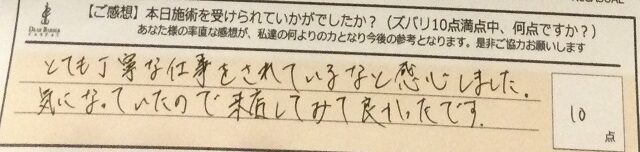 【ご感想】本日施術を受けられていかがでしたか？（ズバリ10点満点中、何点ですか？）
あなた様の率直な感想が、私達の何よりの力となり今後の参考となります。是非ご協力お願いします
DEAR BARBER
とても丁寧な仕事をされているなと感心しました。
気になっていたので来店してみて良かったです。
10
点